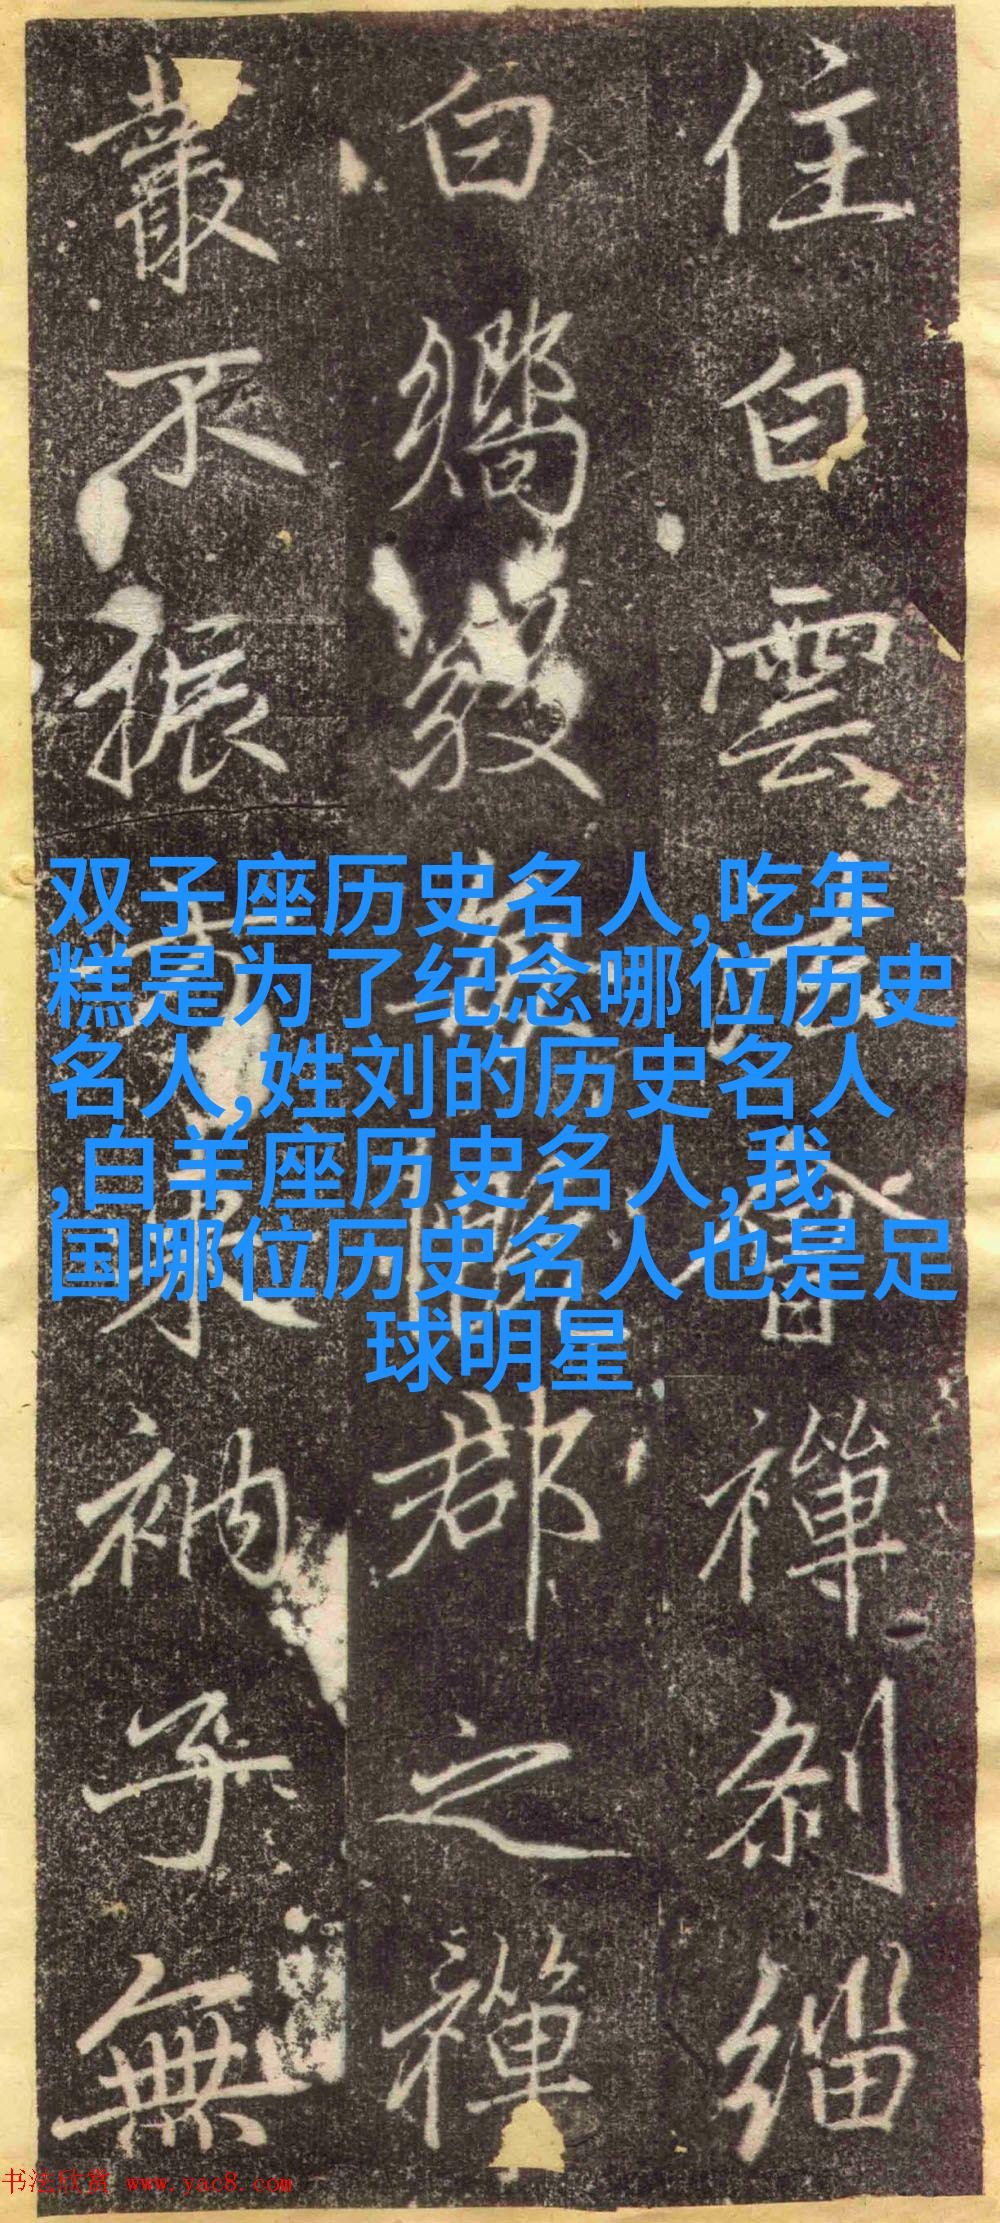 住白雲會禪刹緇
白嚮郡之禪
叢不振衲子無
双子座历史名人,吃年
糕是为了纪念哪位历史
名人,姓刘的历史名人
,白羊座历史名人,我
国哪位历史名人也是足
球明星
书法欣赏 www.yac8.com